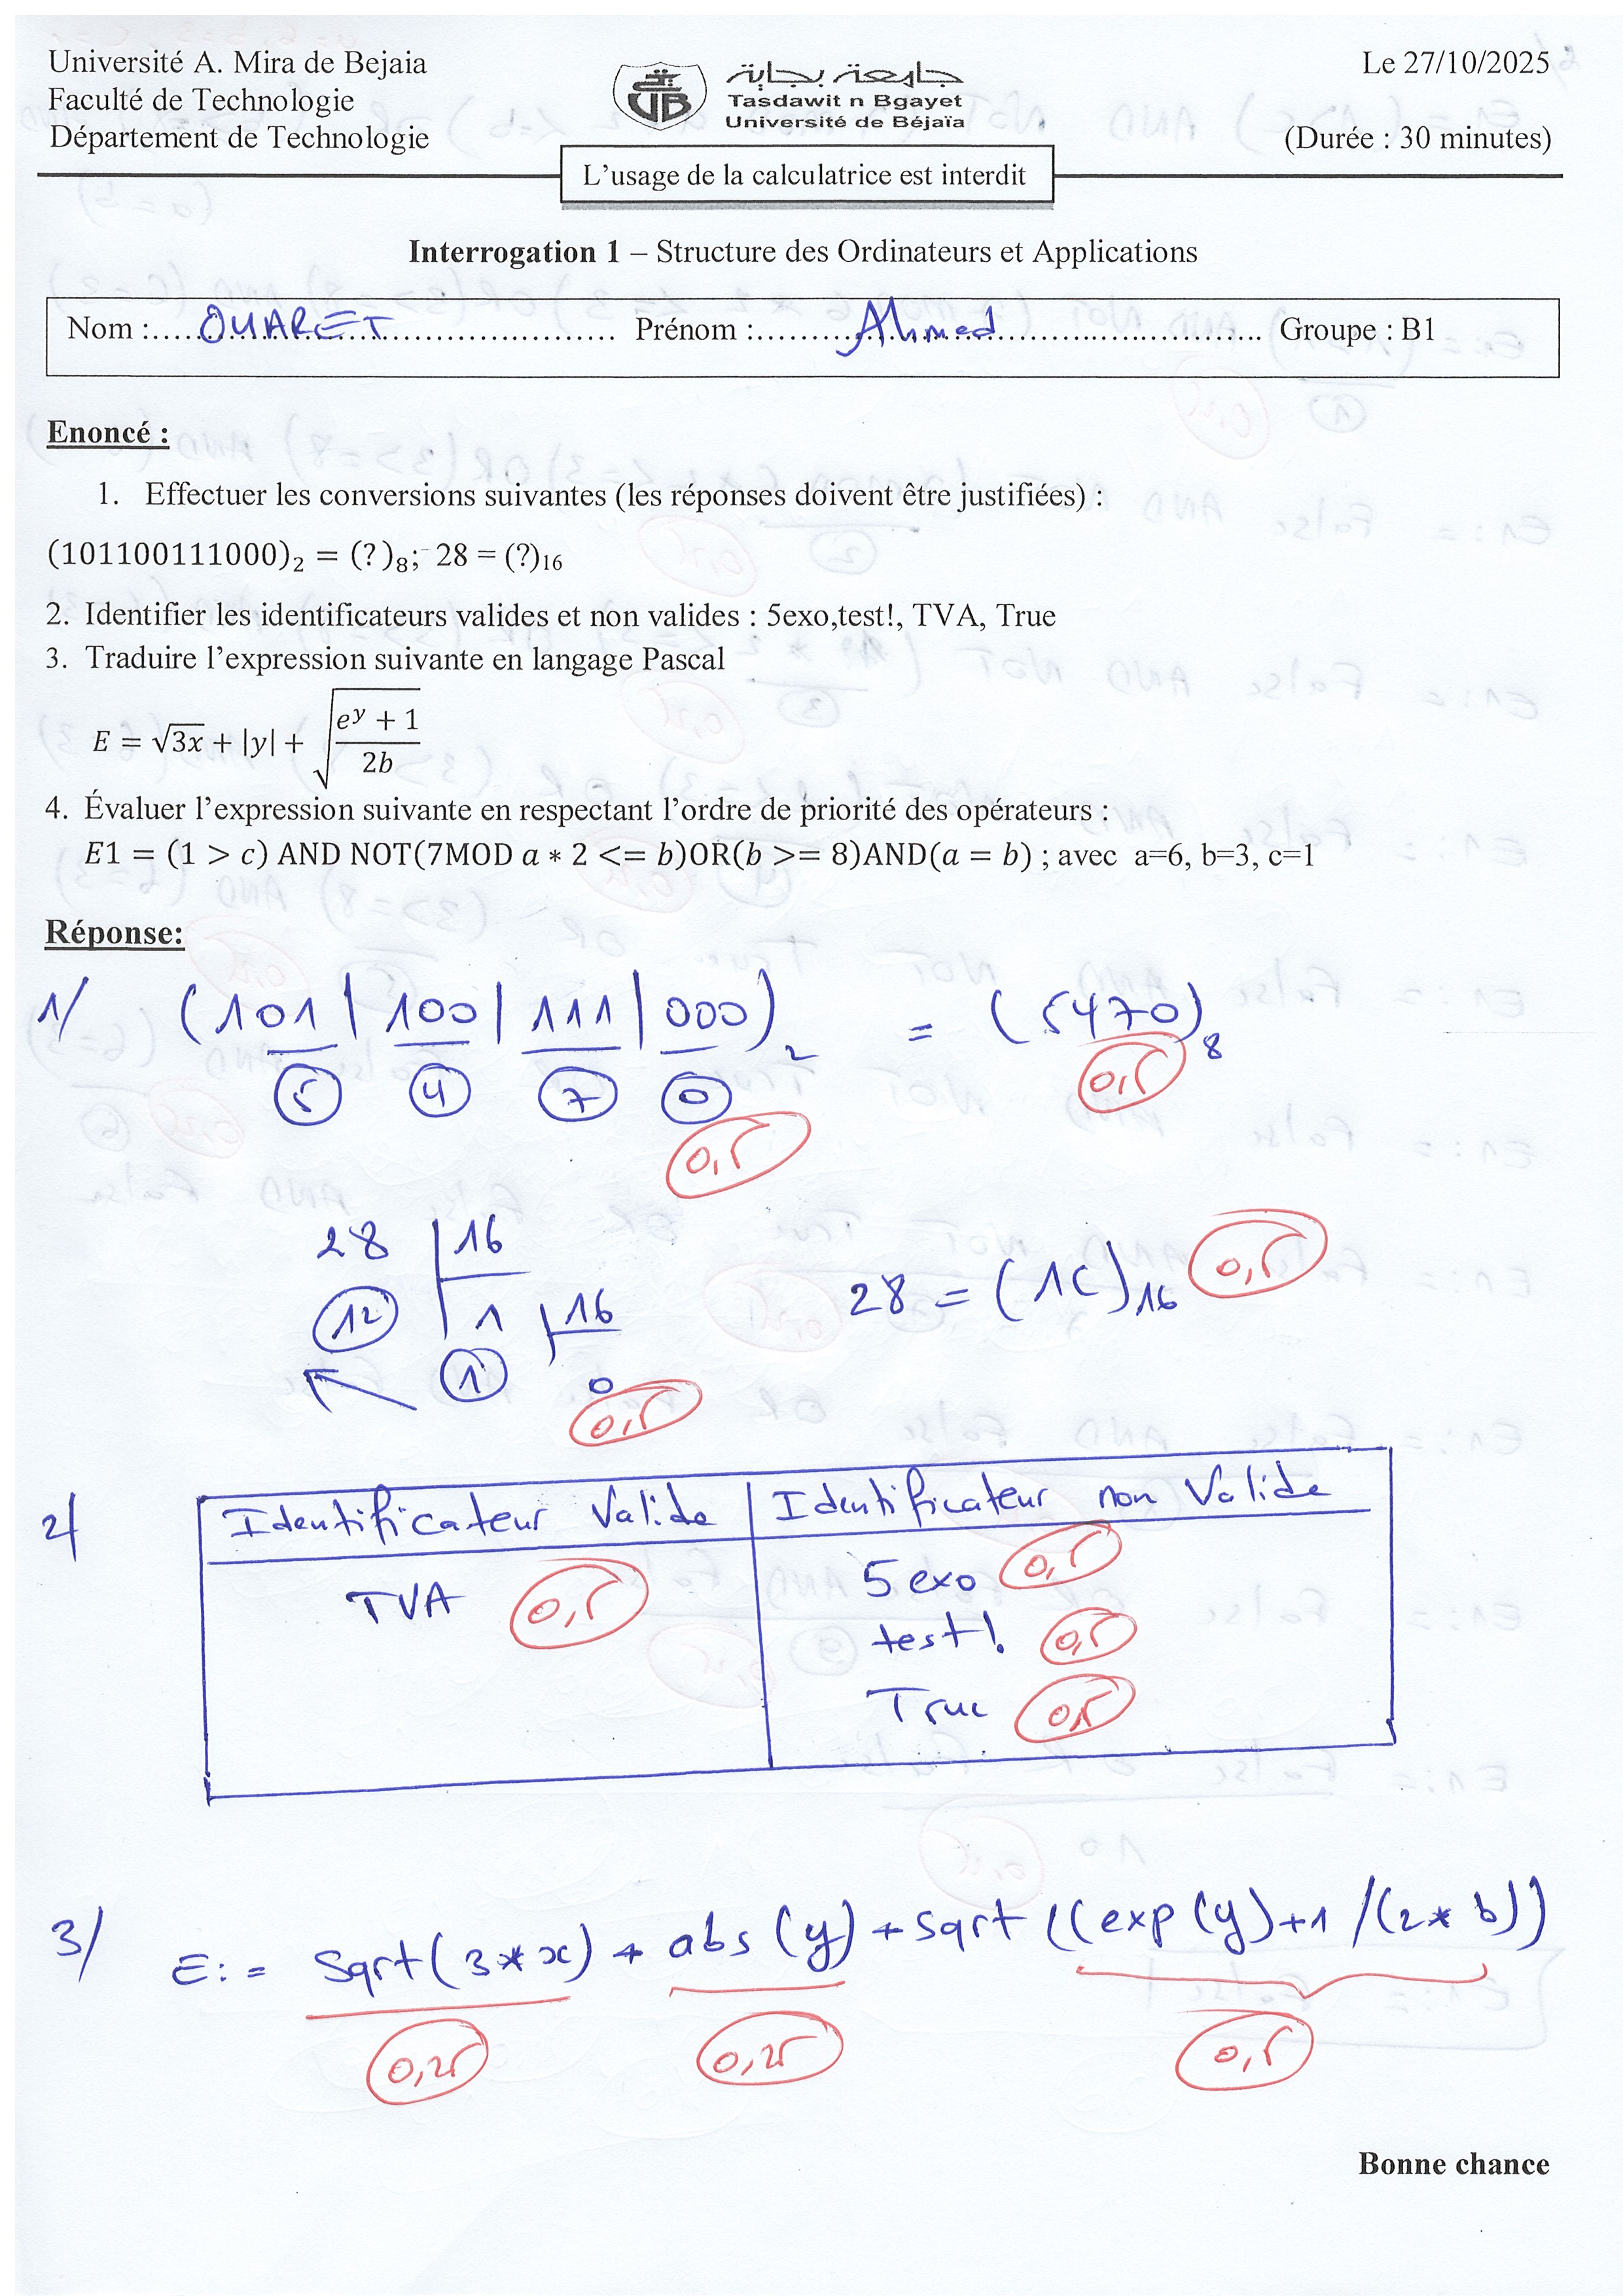 Université A. Mira de Bejaia
Faculté de Technologie
Département de Technologie
جامعة بجاية
Tasdawit n Bgayet
Université de Béjaïa
Le 27/10/2025
(Durée : 30 minutes)
L'usage de la calculatrice est interdit
Interrogation 1 – Structure des Ordinateurs et Applications
Nom :.....OUARET.......... Prénom :..........Ahmed.......... Groupe : B1
Enoncé :
1. Effectuer les conversions suivantes (les réponses doivent être justifiées) :
(101100111000)₂ = (?)₈; 28 = (?)₁₆
2. Identifier les identificateurs valides et non valides : 5exo,test!, TVA, True
3. Traduire l'expression suivante en langage Pascal
E = √3x + |y| + √((e^y + 1)/(2b))
4. Évaluer l'expression suivante en respectant l'ordre de priorité des opérateurs :
E1 = (1 > c) AND NOT(7MOD a * 2 <= b)OR(b >= 8)AND(a = b) ; avec a=6, b=3, c=1
Réponse:
1/ (101 | 100 | 111 | 000)₂ = (5470)₈
5 4 7 0
0,5
0,5
28 | 16
12 1 | 16
1 0
0,5
28 = (1C)₁₆ 0,5
2/
Identificateur Valide | Identificateur non Valide
TVA 0,5
5exo 0,5
test! 0,5
True 0,5
3/ E:= Sqrt(3*x) + abs(y) + Sqrt((exp(y)+1 /(2*b))
0,25 0,25 0,5
Bonne chance